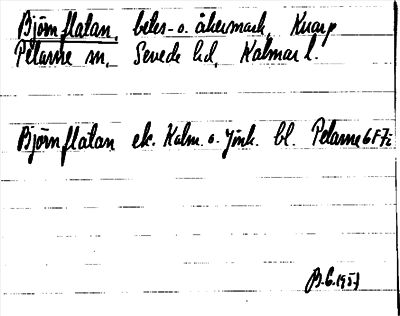 Björnflatan, betes- o. åkermark, Knarp
Pelarne sn, Sevede hd, Kalmar l.
Björnflatan ek. Kalm. o. Jönk. bl. Pelarne 6F7i
B.G. 1957